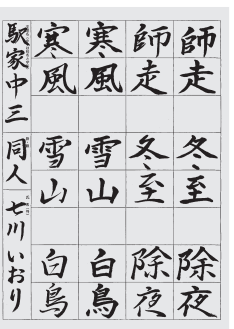 師走
冬至
除夜
師走
冬至
除夜
寒風
雪山
白鳥
寒風
雪山
白鳥
駅家中三
同人
七川いおり